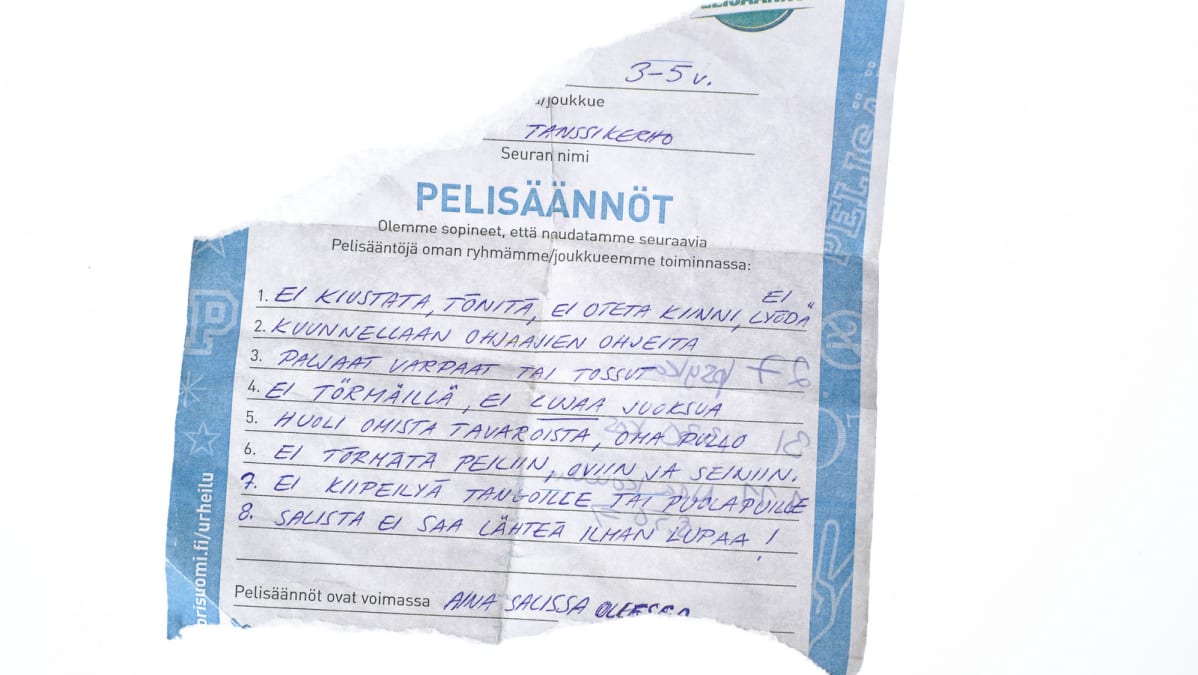 PELISÄÄNNÖ
3-5 v.
/joukkue
TANSSIKERHO
Seuran nimi
PELISÄÄNNÖT
Olemme sopineet, että noudatamme seuraavia
Pelisääntöjä oman ryhmämme/joukkueemme toiminnassa:
1. EI KIUSTATA, TÖNITÄ, EI OTETA KIINNI, EI LYÖDÄ
2. KUUNNELLAAN OHJAAJIEN OHJEITA
3. PALJAAT VARPAAT TAI TOSSUT
4. EI TÖRMÄILLÄ, EI LUJAA JUOKSUA
5. HUOLI OMISTA TAVAROISTA, OMA PULLO
6. EI TÖRMÄTÄ PEILIIN, OVIIN JA SEINIIN.
7. EI KIIPEILYÄ TANGOILLE TAI PUOLAPUILLE
8. SALISTA EI SAA LÄHTEÄ ILMAN LUPAA!
Pelisäännöt ovat voimassa AINA SALISSA OLLESSA
orisuomi.fi/urheilu
PELISÄ